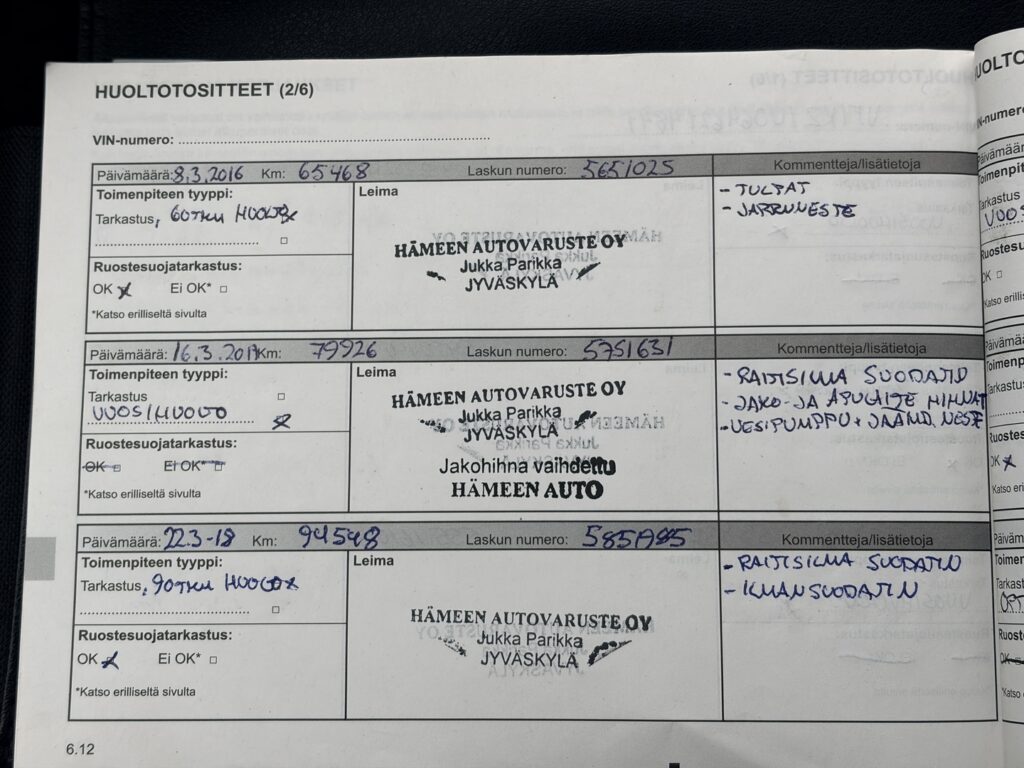 HUOLTOTOSITTEET (2/6)
VIN-numero:
Päivämäärä: 8.3.2016 Km: 65468 Laskun numero: 5651025 Kommentteja/lisätietoja
Toimenpiteen tyyppi:
Tarkastus, 60TKM HUOLTO
Ruostesuojatarkastus:
OK x Ei OK*
*Katso erilliseltä sivulta
Leima
HÄMEEN AUTOVARUSTE OY
Jukka Parikka
JYVÄSKYLÄ
- TULPAT
- JARRUNESTE
Päivämäärä: 16.3.2017 Km: 79926 Laskun numero: 5751631 Kommentteja/lisätietoja
Toimenpiteen tyyppi:
Tarkastus
VUOSIHUOLTO x
Ruostesuojatarkastus:
OK Ei OK*
*Katso erilliseltä sivulta
Leima
HÄMEEN AUTOVARUSTE OY
Jukka Parikka
JYVÄSKYLÄ
Jakohihna vaihdettu
HÄMEEN AUTO
- RAITISILMA SUODATIN
- JAKO- JA APULAITE HIHNAT
- VESIPUMPPU + JÄÄHD. NESTE
Päivämäärä: 22.3-18 Km: 94548 Laskun numero: Kommentteja/lisätietoja
Toimenpiteen tyyppi:
Tarkastus, 90TKM HUOLTO x
Ruostesuojatarkastus:
OK x Ei OK*
*Katso erilliseltä sivulta
Leima
HÄMEEN AUTOVARUSTE OY
Jukka Parikka
JYVÄSKYLÄ
- RAITISILMA SUODATIN
- ILMANSUODATIN
6.12